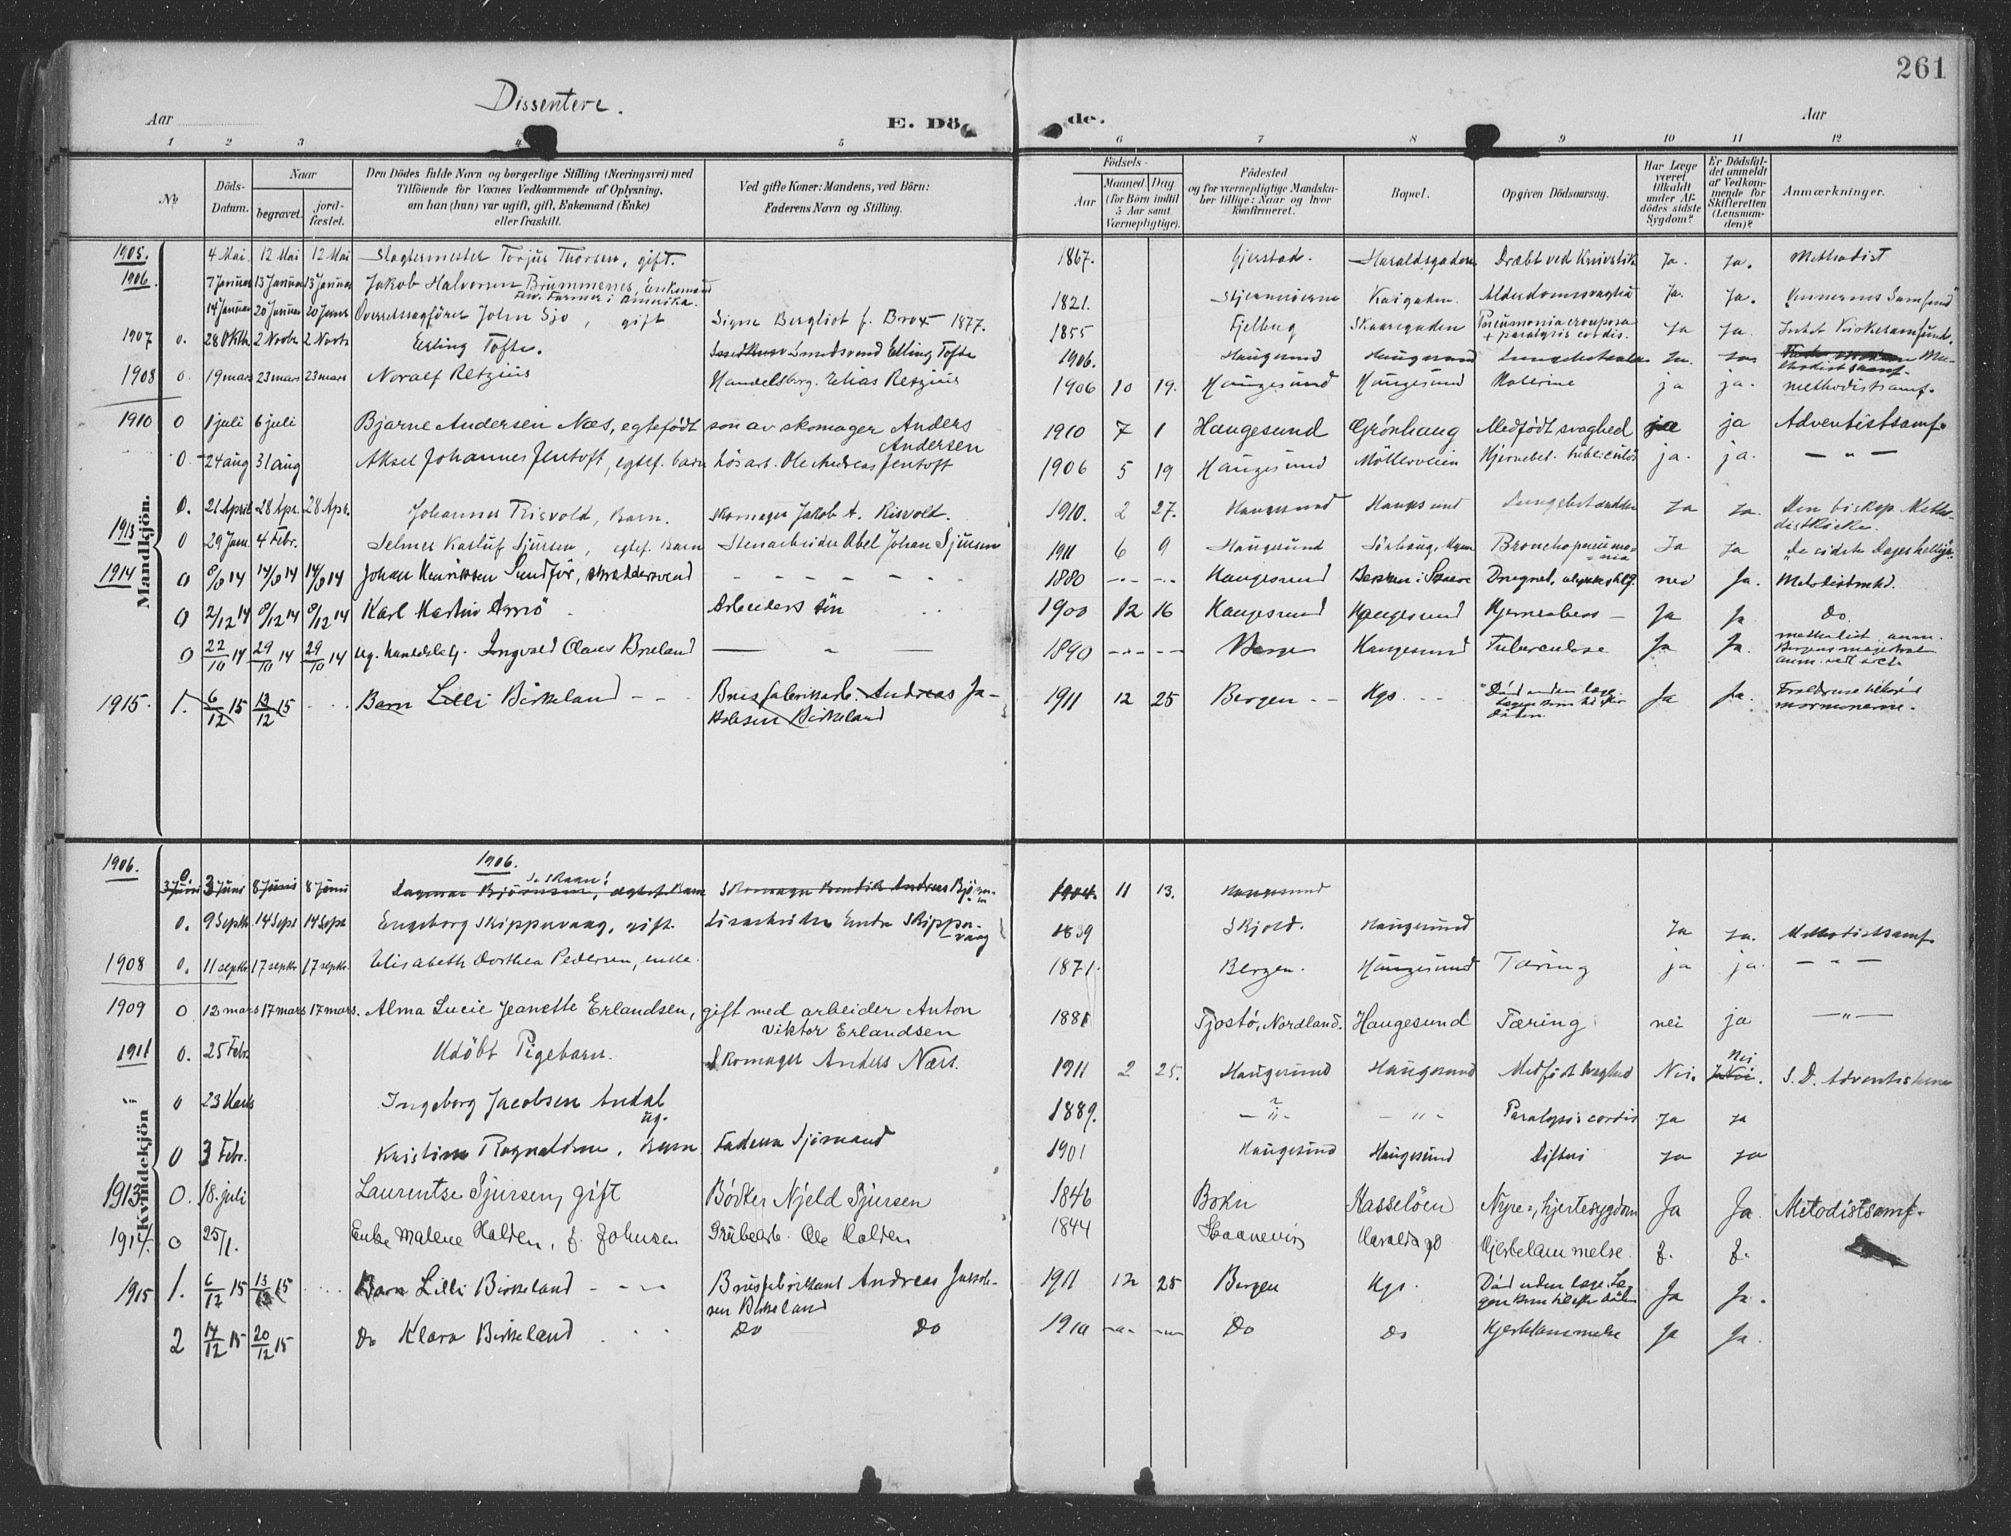 261
Dissentere.
Aar
E. Dö
de.
Aar
1 2 3 4 5 6 7 8 9 10 11 12
No
Döds-Datum.
Naar
begravet.
jord-fæstet.
Den Dödes fulde Navn og borgerlige Stilling (Næringsvei) med
Tilföiende for Voxnes Vedkommende af Oplysning,
om han (hun) var ugift, gift, Enkemand (Enke)
eller fraskilt.
Ved gifte Koner: Mandens, ved Börn:
Faderens Navn og Stilling.
Födsels-
Aar
Maaned. Dag
(for Börn indtil
5 Aar samt
Værnepligtige).
Födested
og for værnepligtige Mandska-
ber tillige: Naar og hvor
konfirmeret.
Bopæl.
Opgiven Dödsaarsag.
Har Læge
været
tilkaldt
under Af-
dödes sidste
Sygdom?
Er Dödsfal-
det anmeldt
af Vedkom-
mende for
Skifteretten
(Lensman-
den)?
Anmærkninger.
Mandkjön.
1905. 4 Mai. 12 Mai 12 Mai Slagtermester Torjus Thorsen, gift. 1867. Gjerstad. Haraldsgaden Dræbt ved Knivstik Ja. Ja. Methodist
1906. 7 Januar 13 Januar 13 Januar Jakob Halvorsen Brummenes, Enkemand
Farmer i Amerika. 1821. Stjernøerne Kaigaden. Alderdomssvaghed Ja. Ja. Vennernes Samfund
14 Januar 20 Januar 20 Januar Overretssagfører John Sjo, gift Signe Bergliot f. Brox 1877. 1855 Fjelberg Skaaregaden Pneumonia crouposa
+ paralysis cordis. Ja Ja. Intet Kirkesamfund.
1907 0. 28 Oktb 2 Novbr 2 Novb Erling Tofte. Smedsvend Elling Tofte 1906. Haugesund Haugesund Ja. Ja
1908 0. 19 mars 23 mars 23 mars Noralf Retzius Handelsbg. Elias Retzius 1906 10 19. Haugesund Haugesund ja ja. methodistsamf.
1910 0 1 juli 6 juli Bjarne Andersen Næs, egtefødt søn av skomager Anders
Andersen 1910 7 1 Haugesund Grønhaug Medfødt svaghed ja ja Adventistsamf.
0 24 aug 31 aug Aksel Johannes Jentoft, egtef. barn hos arb. Ole Andreas Jentoft 1906 5 19 Haugesund Møllerveien Hjernebet. tuberculøs ja. ja. — " —
0. 21 April 28 Apr. 28 Apr. Johannes Risvold, Barn. Skomager Jakob A. Risvold. 1910. 2 27. Haugesund Haugesund Lungebetændelse Ja Ja. Den biskop. Metho-
distkirke.
1913 0 29 Jan. 4 Febr. Selmer Sjursen, egtef. Barn Stenarbeider Abel Johan Sjursen 1911 6 9 Haugesund Sørhaug, Bronchopneumo-
nia Ja Ja De sidste Dages hellige
1914 0 8/8 14 14/8 14 14/8 14 Johan Henriksen Sundfør, skræddersvend — — — 1880 — — Haugesund Druknet, nei Ja. Metodistmed.
0 2/12 14 9/12 14 9/12 14 Karl Martin Arbeiders søn 1900 12 16 Haugesund Haugesund Ja Ja Do.
0 22/10 14 29/10 14 29/10 14 Ug. handelsbg. Ingvald Olaus Brueland — " — 1890 — — Bergen Haugesund Tuberculose Ja Ja. methodist anm.
Bergens magistrat
1915. 1. 6/12 15 13/12 15 Barn Lilli Birkeland — Brusfabrikarb. Andreas Ja-
kobsen Birkeland 1911 12 25 Bergen — Hgs. Død uden læge.
Lægen kom til efter
døden Ja Ja. Forældrene tilhører
mormonerne.
Kvindekjön
1906.
1906. 3 Juni 3 Juni 8 Junis 8 Juni Dagmar Bjørnsen, egtef. Barn Skomager Bendik Andreas Bjørn-
sen 1904. 11 13. Haugesund
0. 9 Septb. 14 Sept 14 Sept Engeborg Skippervaag, gift. Endre Skipper-
vaag 1839 Skjold. Haugesund Ja Ja. Methodistsamf.
1908 0. 11 septbr. 17 septbr. 17 septbr. Elisabeth Dorthea Pedersen, enke. 1871. Bergen. Haugesund Tæring ja ja. — " —
1909 0 12 mars 17 mars 17 mars. Alma Lucie Jeanette Erlandsen, gift med arbeider Anton
Viktor Erlandsen 1881 Tjøttø, Nordland. Haugesund Tæring nei ja — " —
1911 0. 25 Febr. Udøbt Pigebarn. Skomager Anders Næss. 1911 2 25. Haugesund Haugesund Medfødt svaghed Nei. Nei S. D. Adventisterne
0 23 Marts Ingeborg Jacobsen Andal
ug. 1889. — " — — " — Paralysis cordis Ja Ja
0 3 Febr. Kristine Ragnaldsen, Barn Faderen Sjømand 1901 Haugesund Haugesund Difteri Ja Ja
1913 0. 18. juli Laurentse Sjursen, gift Bødker Njeld Sjursen 1846 Bokn Hasseløen Nyre-, hjertesygdom Ja Ja. Metodistsamf.
1914. 0 25/1. Enke Malene Halden, f. Johnsen Grubearb. Ole Halden 1844 Skaanevig Haraldsg Hjertelammelse. J. J.
1915 1. 6/12 15 13/12 15 Barn Lilli Birkeland — Brusfabrikant Andreas Jakob-
sen Birkeland 1911 12 25 Bergen Hgs. Død uden læge. Læ-
gen kom til efter døden Ja Ja.
2 14/12 15 20/12 15 Do Klara Birkeland Do Do 1910 — — Do Do Hjertelammelse Ja Ja.